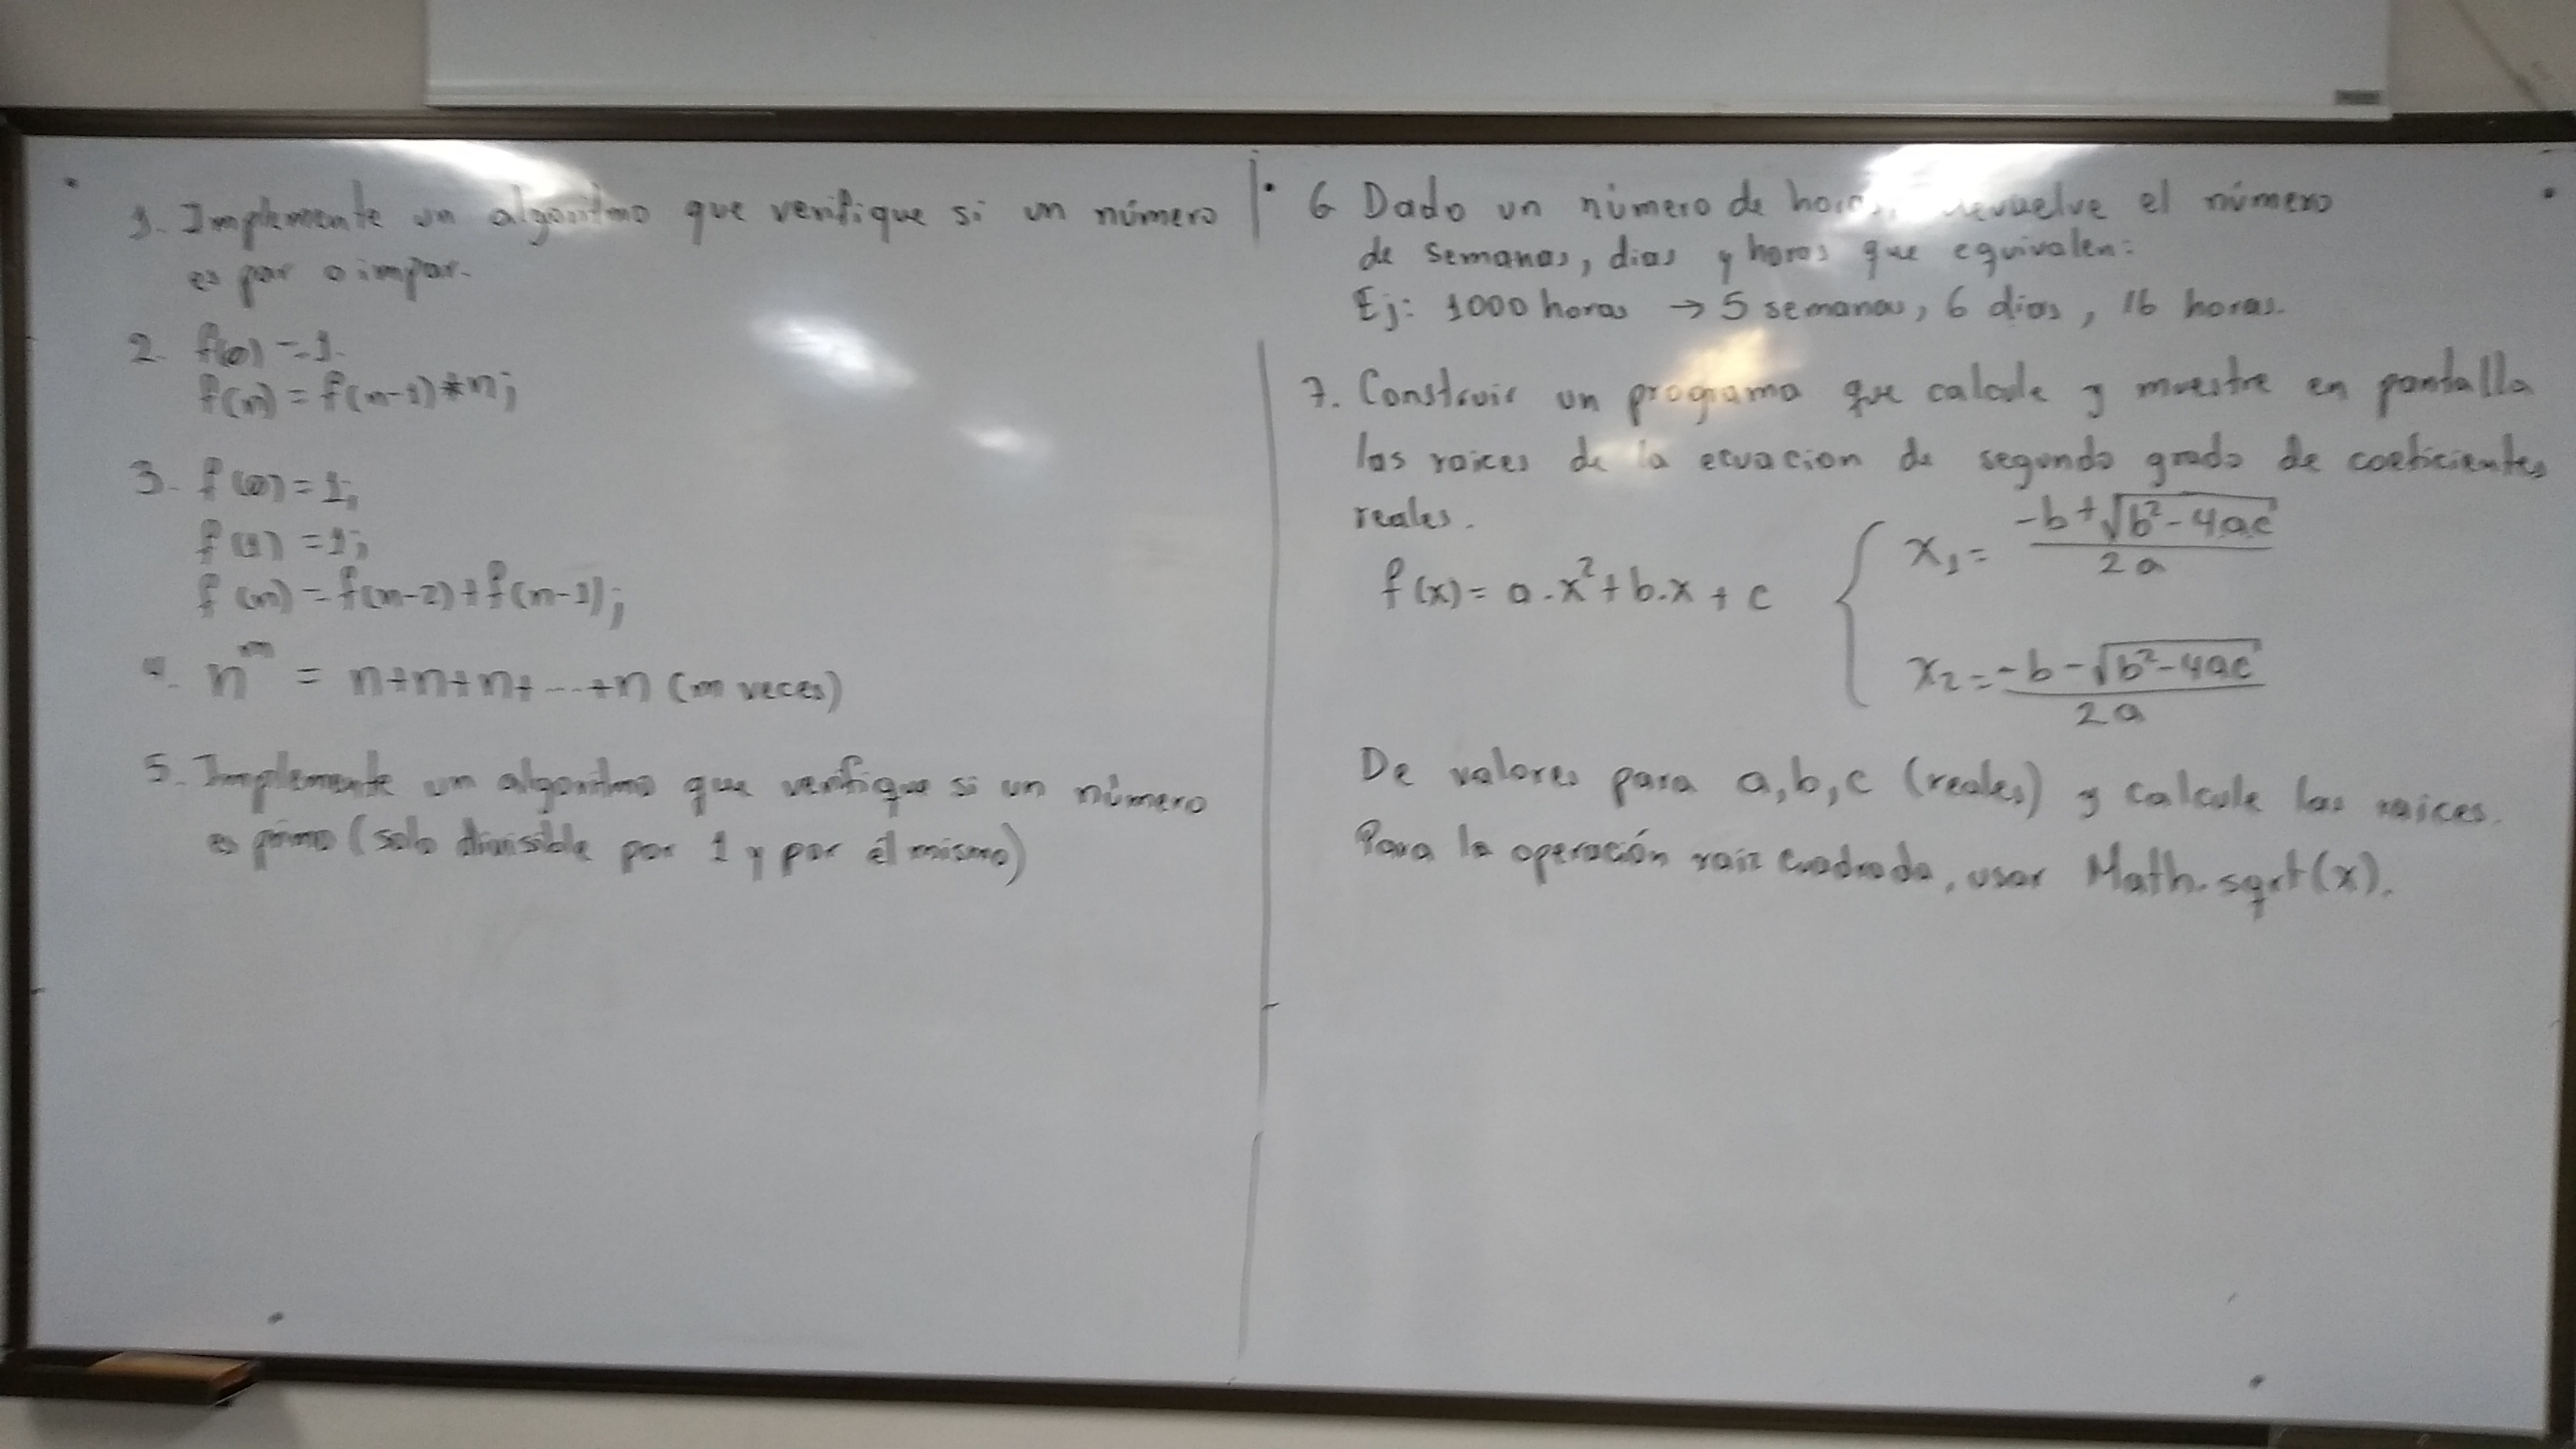 1. Implemente un algoritmo que verifique si un número
es par o impar.
2. f(0) = 1.
f(n) = f(n-1)*n;
3. f(0) = 1;
f(1) = 1;
f(n) = f(n-2)+f(n-1);
4. n^m = n+n+n+...+n (m veces)
5. Implemente un algoritmo que verifique si un número
es primo (solo divisible por 1 y por él mismo)
6 Dado un número de el número
de semanas, dias y horas que equivalen:
Ej: 1000 horas → 5 semanas, 6 dias, 16 horas.
7. Construir un programa que calcule y muestre en pantalla
las raices de la ecuacion de segundo grado de coeficientes
reales.
f(x) = a.x²+b.x + c
x₁ = (-b+√(b²-4ac))/2a
x₂ = (-b-√(b²-4ac))/2a
De valores para a,b,c (reales) y calcule las raices.
Para la operación raiz cuadrada, usar Math.sqrt(x).